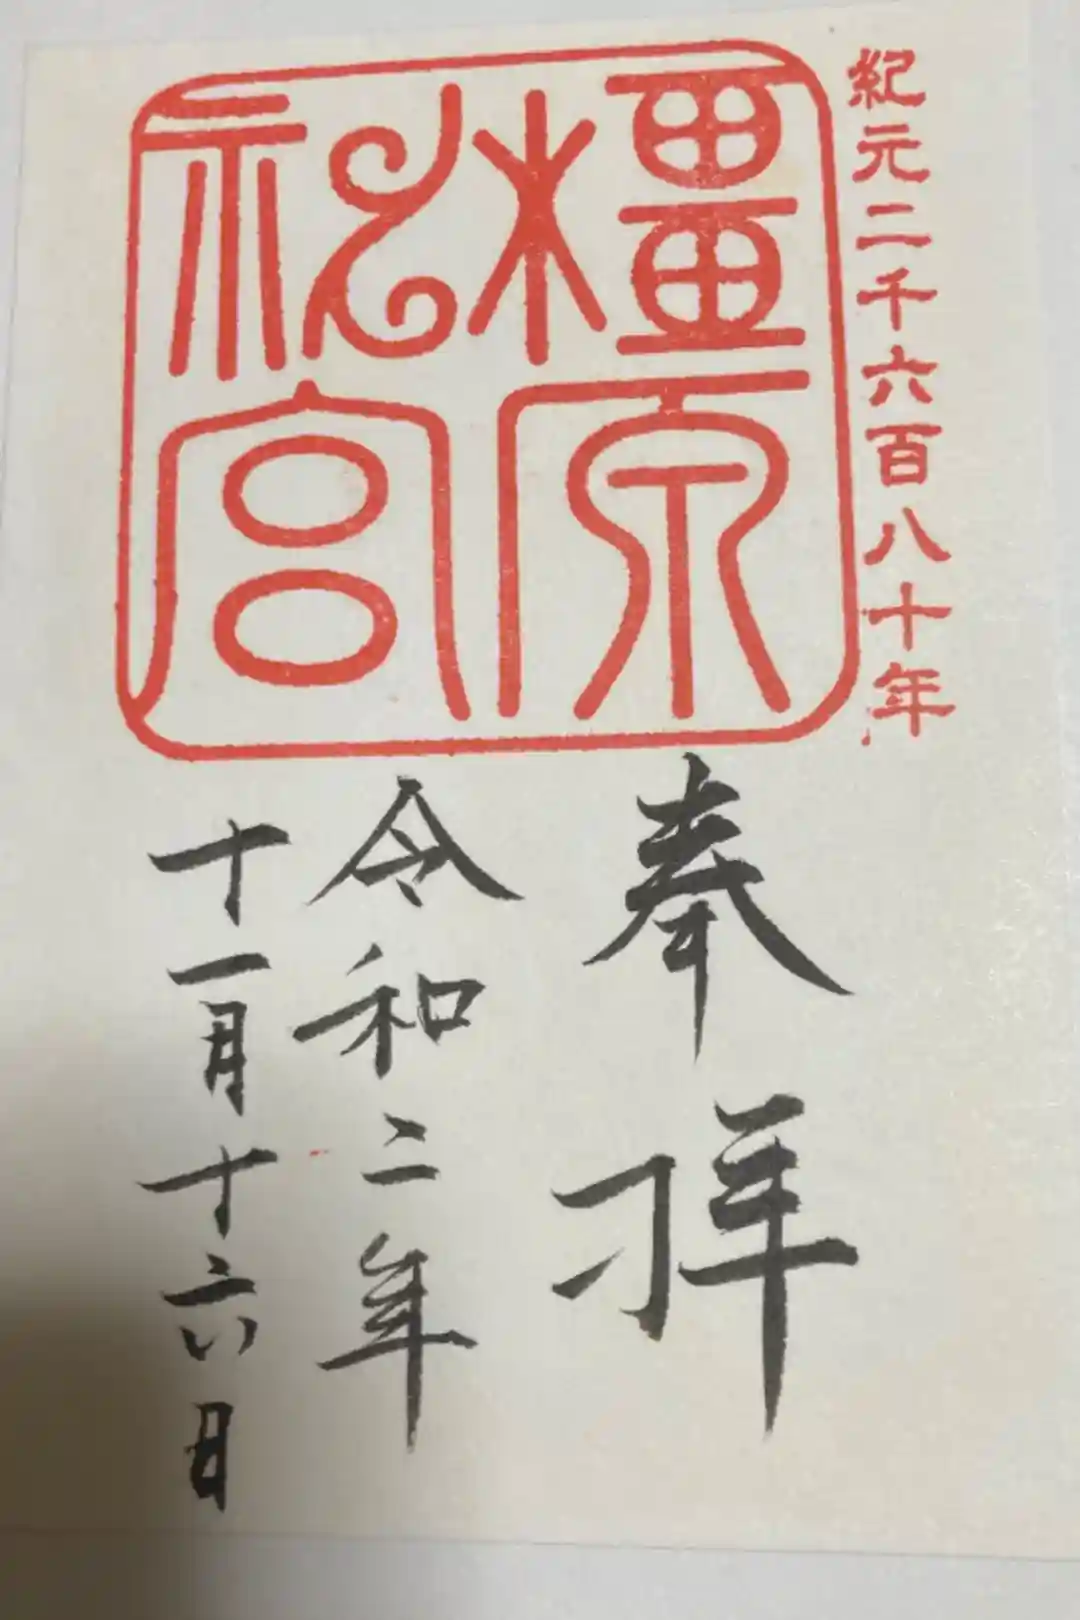 紀元二千六百八十年
橿原
神宮
奉拝
令和二年
十一月十六日